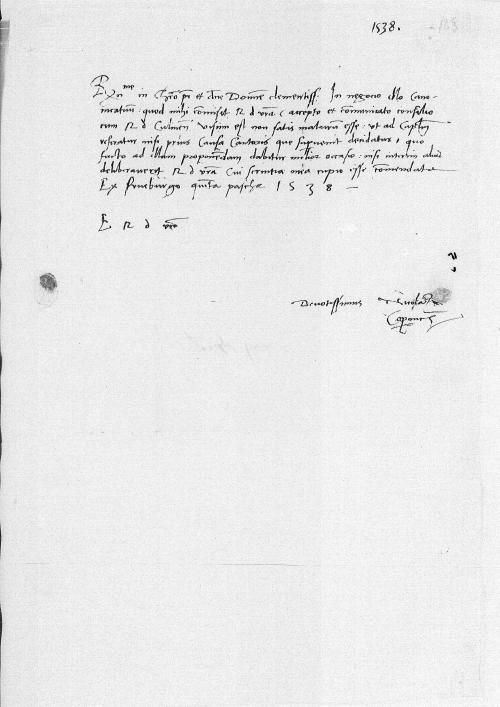 1538.
R^me in Chro pr et dne Domine clementiss. In negocio illo Cano-
nicatuum: quod mihi comisit R d vra: accepto et comunicato consilio
cum R d Culmen. visum est non satis maturum esse: ut ad Capitum
referatur nisi prius Causa Cantorie que supervenit decidatur, quo
facto ad illam proponendam dabitur melior occasio. nisi interim aliud
deliberaverit R d vra Cui servitia mea cupio esse comendata
Ex Frueburgo quita pasche 1538 —
E R d vre
Devotissimus